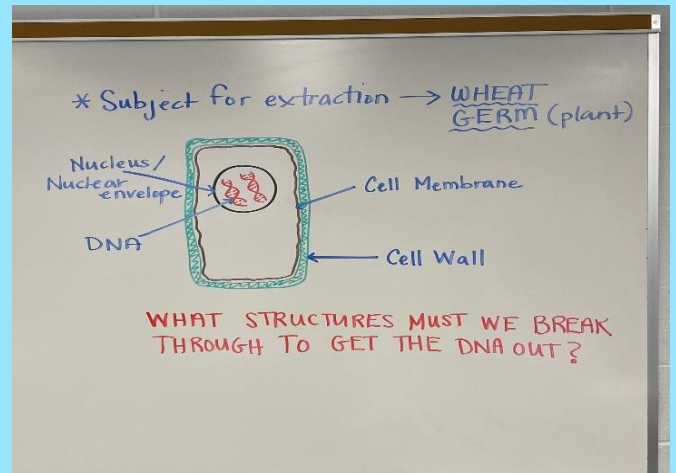 * Subject for extraction → WHEAT
GERM (plant)
Nucleus/
Nuclear
envelope
Cell Membrane
DNA
Cell Wall
WHAT STRUCTURES MUST WE BREAK
THROUGH TO GET THE DNA OUT?